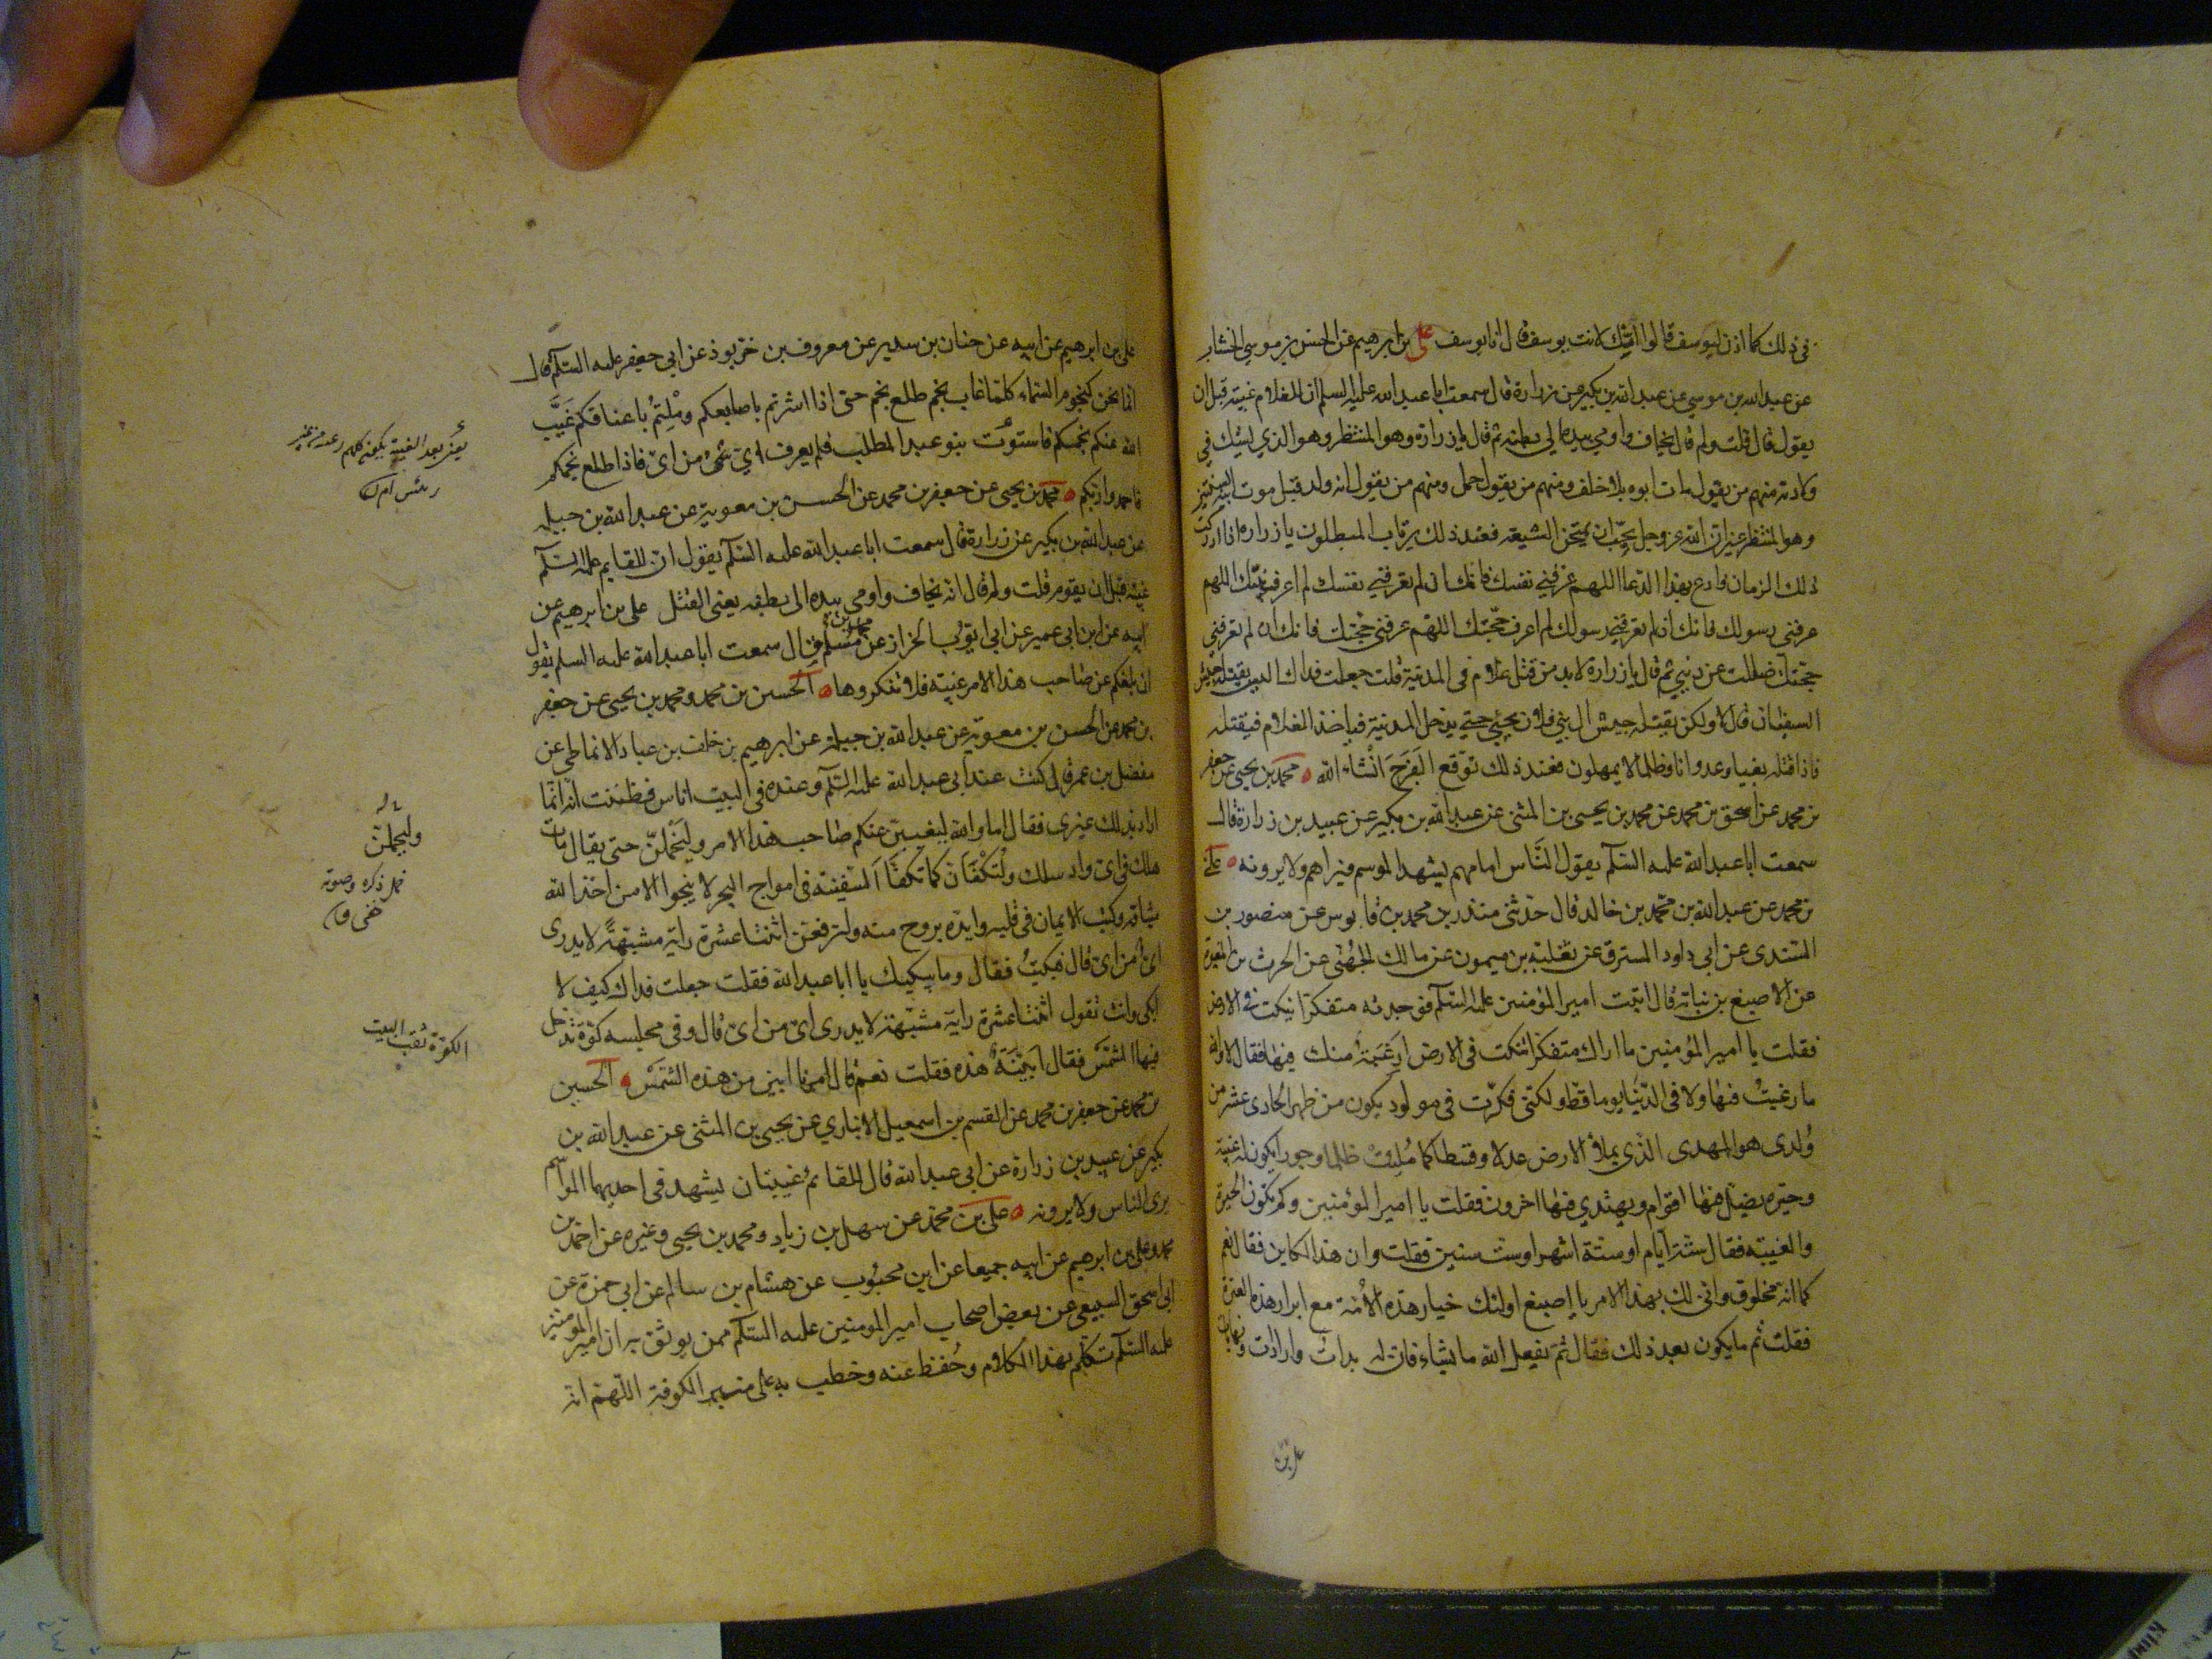 في ذلك كما اذن ليوسف قالوا ائنك لانت يوسف قال انا يوسف علي بن ابرهيم عن الحسن بن موسى الخشاب
عن عبدالله بن موسى عن عبدالله بن بكير عن زرارة قال سمعت ابا عبدالله عليه السلم ان للغلام غيبة قبل ان
يقوم قال قلت ولم قال يخاف واومى بيده الى بطنه ثم قال يا زرارة وهو المنتظر وهو الذي يشك في
ولادته منهم من يقول مات ابوه بلا خلف ومنهم من يقول حمل ومنهم من يقول انه ولد قبل موت ابيه بسنتين
وهو المنتظر غير ان الله عز وجل يحب ان يمتحن الشيعة فعند ذلك يرتاب المبطلون يا زرارة اذا ادركت
ذلك الزمان فادع بهذا الدعا اللهم عرفني نفسك فانك ان لم تعرفني نفسك لم اعرف نبيك اللهم
عرفني رسولك فانك ان لم تعرفني رسولك لم اعرف حجتك اللهم عرفني حجتك فانك ان لم تعرفني
حجتك ضللت عن ديني ثم قال يا زرارة لابد من قتل غلام في المدينة قلت جعلت فداك اليس يقتله جيش
السفياني قال لا ولكن يقتله جيش ال بني فلان يجيئ حتى يدخل المدينة فياخذ الغلام فيقتله
فاذا قتله بغيا وعدوانا وظلما لا يمهلون فعند ذلك توقع الفرج انشاء الله محمد بن يحيى عن جعفر
بن محمد عن اسحق بن محمد عن محمد بن يحيى بن المثنى عن عبدالله بن بكير عن عبيد بن زرارة قال
سمعت ابا عبدالله عليه السلم يقول يفقد الناس امامهم يشهد الموسم فيراهم ولا يرونه علي
بن محمد عن عبدالله بن محمد بن خالد قال حدثني منذر بن محمد بن قابوس عن منصور بن
السندى عن ابى داود المسترق عن ثعلبة بن ميمون عن مالك الجهنى عن الحرث بن المغيرة
عن الاصبغ بن نباتة قال اتيت امير المؤمنين عليه السلم فوجدته متفكرا ينكت فى الارض
فقلت يا امير المؤمنين ما اراك متفكرا تنكت فى الارض ارغبة منك فيها فقال لا والله
ما رغبت فيها ولا فى الدنيا يوما قط ولكنى فكرت فى مولود يكون من ظهر الحادى عشر من
ولدى هو المهدى الذي يملأ الارض عدلا وقسطا كما ملئت ظلما وجورا يكون له غيبة
وحيرة يضل فيها اقوام ويهتدي فيها اخرون فقلت يا امير المؤمنين وكم تكون الحيرة
والغيبة فقال ستة ايام او ستة اشهر او ست سنين فقلت وان هذا لكاين فقال نعم
كما انه مخلوق وانى لك بهذا الامر يا اصبغ اولئك خيار هذه الامة مع ابرار هذه العترة
فقلت ثم ما يكون بعد ذلك فقال ثم يفعل الله ما يشاء فان له بداات وارادات ونهايات
علي بن
علي بن ابرهيم عن ابيه عن حنان بن سدير عن معروف بن خربوذ عن ابي جعفر عليه السلم قال
انما نحن كنجوم السماء كلما غاب نجم طلع نجم حتى اذا اشرتم باصابعكم وملتم باعناقكم غيب
الله عنكم نجمكم فاستوت بنو عبد المطلب فلم يعرف اي شئ من اي فاذا طلع نجمكم
فاحمدوا ربكم محمد بن يحيى عن جعفر بن محمد عن الحسن بن معوية عن عبدالله بن جبلة
عن عبدالله بن بكير عن زرارة قال سمعت ابا عبدالله عليه السلم يقول ان للقايم عليه السلم
غيبة قبل ان يقوم قلت ولم قال انه يخاف واومى بيده الى بطنه يعنى القتل علي بن ابرهيم عن
ابيه عن ابن ابى عمير عن ابى ايوب الخزاز عن محمد بن مسلم قال سمعت ابا عبدالله عليه السلم يقول
ان بلغكم عن صاحب هذا الامر غيبة فلا تنكروها الحسين بن محمد ومحمد بن يحيى عن جعفر
بن محمد عن الحسن بن معوية عن عبدالله بن جبلة عن ابرهيم بن خلف بن عباد الانماطي عن
مفضل بن عمر قال كنت عند ابي عبدالله عليه السلم وعنده في البيت اناس فظننت انه انما
اراد بذلك غيري فقال اما والله ليغيبن عنكم صاحب هذا الامر وليخملن حتى يقال مات
هلك في اي واد سلك ولتكفأن كما تكفأ السفينة في امواج البحر لا ينجوا الا من اخذ الله
ميثاقه وكتب الايمان في قلبه وايده بروح منه ولترفعن اثنتا عشرة راية مشتبهة لا يدرى
اي من اي قال فبكيت فقال وما يبكيك يا ابا عبدالله فقلت جعلت فداك كيف لا
ابكى وانت تقول اثنتا عشرة راية مشتبهة لا يدرى اي من اي قال وفى مجلسه كوة تدخل
فيها الشمس فقال ابينة هذه فقلت نعم قال امرنا ابين من هذه الشمس الحسين
بن محمد عن جعفر بن محمد عن القسم بن اسمعيل الانباري عن يحيى بن المثنى عن عبدالله بن
بكير عن عبيد بن زرارة عن ابى عبدالله قال للقائم غيبتان يشهد فى احديهما المواسم
يرى الناس ولا يرونه علي بن محمد عن سهل بن زياد ومحمد بن يحيى وغيره عن احمد بن
محمد وعلي بن ابرهيم عن ابيه جميعا عن ابن محبوب عن هشام بن سالم عن ابى حمزة عن
ابى اسحق السبيعى عن بعض اصحاب امير المومنين عليه السلم ممن يوثق به ان امير المومنين
عليه السلم تكلم بهذا الكلام وحفظ عنه وخطب به على منبر الكوفة اللهم انه
وليخملن
خمل ذكره وصوته
خفى
الكوة ثقب البيت